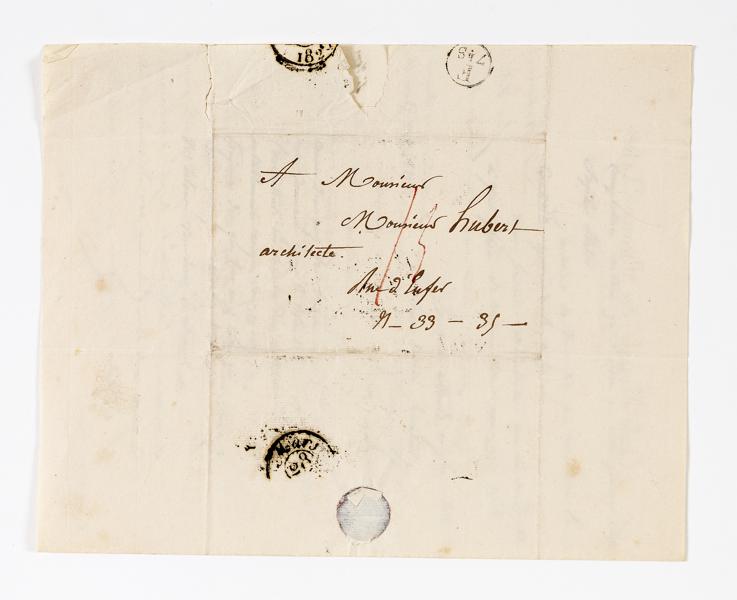 182
7 4S
A Monsieur
Monsieur hubert
architecte.
Rue d'Enfer
N - 33 - 35 -
Mars
28